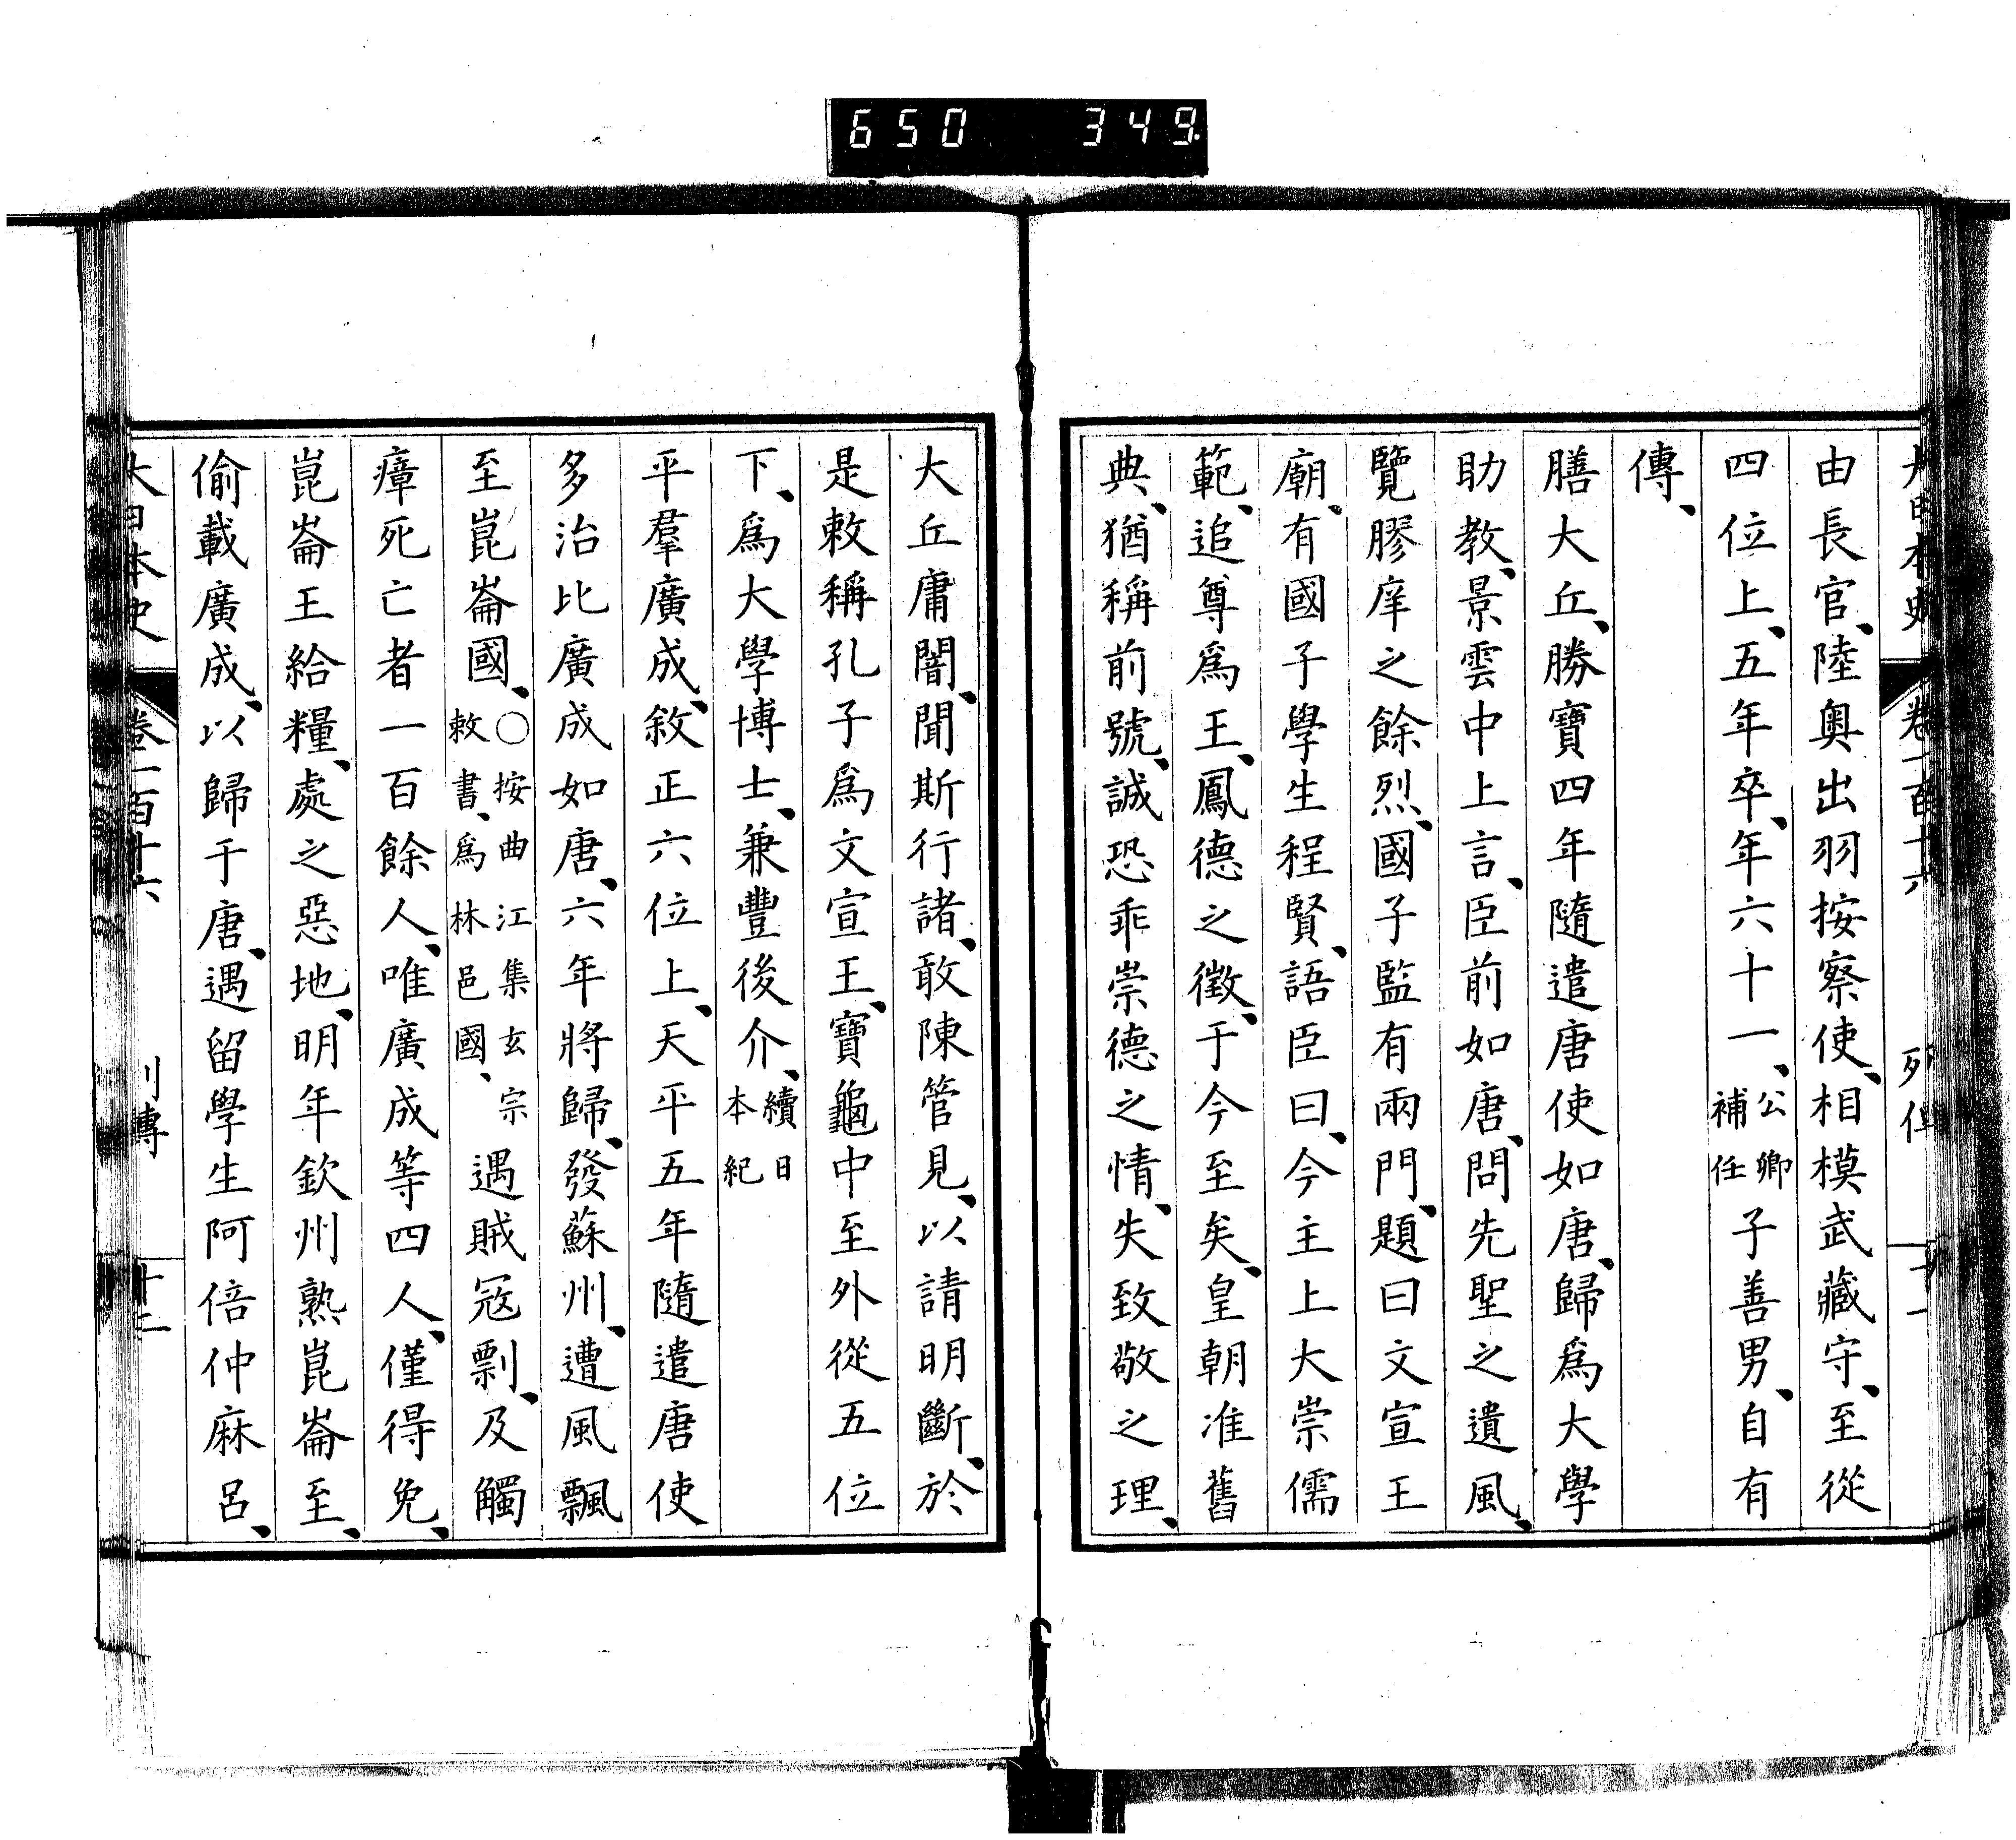 650 349
大日本史 卷一百十六 列傳 十一
由長官、陸奥出羽按察使、相模武藏守、至從
四位上、五年卒、年六十一、公卿補任子善男、自有
傳、
膳大丘、勝寶四年隨遣唐使如唐、歸爲大學
助教、景雲中上言、臣前如唐、問先聖之遺風、
覽膠庠之餘烈、國子監有兩門、題曰文宣王
廟、有國子學生程賢、語臣曰、今主上大崇儒
範、追尊爲王、鳳德之徵、于今至矣、皇朝准舊
典、猶稱前號、誠恐乖崇德之情、失致敬之理、
大丘庸闇、聞斯行諸、敢陳管見、以請明斷、於
是敕稱孔子爲文宣王、寶龜中至外從五位
下、爲大學博士、兼豐後介、續日本紀
平羣廣成、敘正六位上、天平五年隨遣唐使
多治比廣成如唐、六年將歸、發蘇州、遭風飄
至崑崙國、〇按曲江集玄宗敕書、爲林邑國、遇賊寇剽、及觸
瘴死亡者一百餘人、唯廣成等四人、僅得免、
崑崙王給糧、處之惡地、明年欽州熟崑崙至、
偷載廣成、以歸于唐、遇留學生阿倍仲麻呂、
大日本史 卷一百十六 列傳 十二